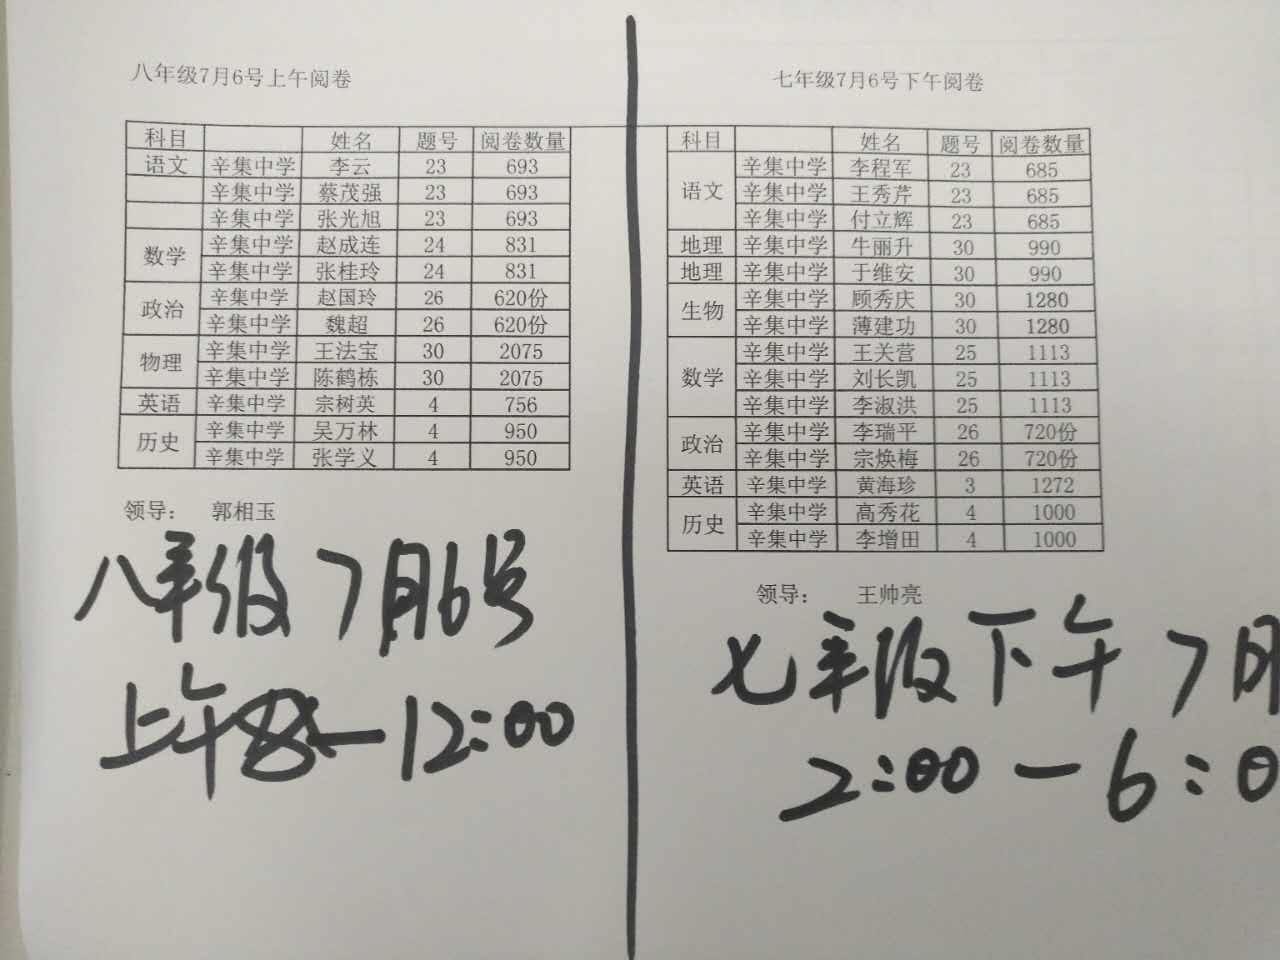 八年级7月6号上午阅卷
科目 姓名 题号 阅卷数量
语文 辛集中学 李云 23 693
辛集中学 蔡茂强 23 693
辛集中学 张光旭 23 693
数学 辛集中学 赵成连 24 831
辛集中学 张桂玲 24 831
政治 辛集中学 赵国玲 26 620份
辛集中学 魏超 26 620份
物理 辛集中学 王法宝 30 2075
辛集中学 陈鹤栋 30 2075
英语 辛集中学 宗树英 4 756
历史 辛集中学 吴万林 4 950
辛集中学 张学义 4 950
领导： 郭相玉
八年级 7月6号
上午8—12:00
七年级7月6号下午阅卷
科目 姓名 题号 阅卷数量
语文 辛集中学 李程军 23 685
辛集中学 王秀芹 23 685
辛集中学 付立辉 23 685
地理 辛集中学 牛丽升 30 990
地理 辛集中学 于维安 30 990
生物 辛集中学 顾秀庆 30 1280
辛集中学 薄建功 30 1280
数学 辛集中学 王关营 25 1113
辛集中学 刘长凯 25 1113
辛集中学 李淑洪 25 1113
政治 辛集中学 李瑞平 26 720份
辛集中学 宗焕梅 26 720份
英语 辛集中学 黄海珍 3 1272
历史 辛集中学 高秀花 4 1000
辛集中学 李增田 4 1000
领导： 王帅亮
七年级下午 7月
2:00—6:0